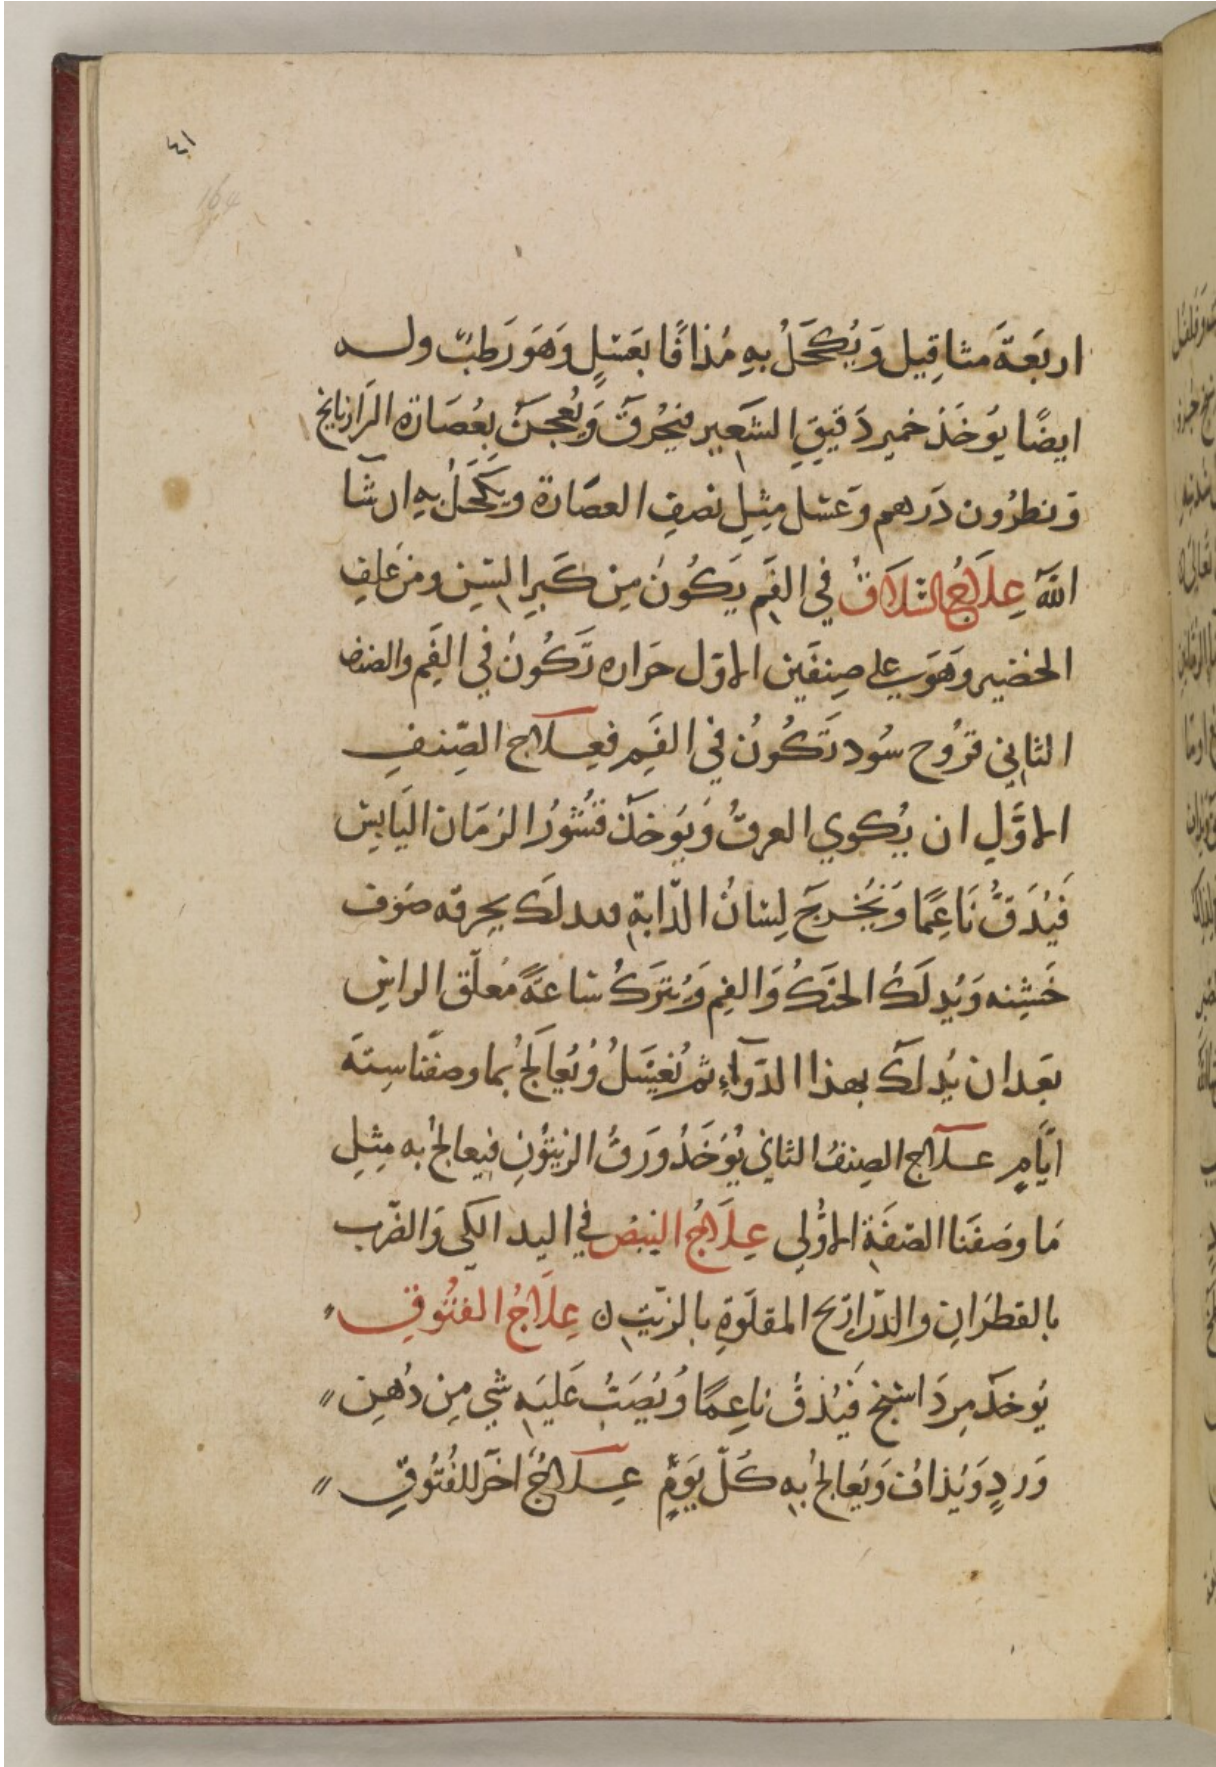 ٤١
164
اربَعَةَ مثاقِيل وَيُكحَلُ بهِ مُذافًا بعَسَلٍ وَهوَ رَطبٌ وله
ايضًا يوخَذ خمير دَقيقِ الشَعِير فيُحرَق وَيُعجَنُ بِعُصَارة الرَازيانج
وَنطرُون دَرهم وَعسَل مِثلِ نصفِ العصَارة ويكحَلُ بهِ ان شآ
اللّه عِلَاجُ السُلَاقُ في الفَم يَكُونُ مِن كَبرِ السِّن ومن عَلفِ
الخضير وهَوَ علي صِنفَين الاول حَراره تَكُونُ في الفَم والصنف
الثاني قرُوح سُود تَكُونُ في الفَم فعِلاج الصِّنفِ
الاوَّلِ ان يُكوي العرقُ وَيوخذ قشُورُ الرمَان اليَابِس
فَيُدَقُ نَاعِمًا وَيُخرجَ لِسَانُ الدّابةِ يحرقه صُوف
خَشِنه وَيُدلَكُ الحنَكُ وَالفم وَيُترَكُ سَاعةً مُعلّق الراسِ
بَعد ان يُدلَكَ بهذا الدّوآءِ ثم يُغسَلُ وُيُعالَجُ بما وصَفنا سِتة
ايَّامٍ عِلاج الصِنفُ الثاني يُؤخَذُ وَرَقُ الزيتُونِ فيعالجُ به مِثلِ
مَا وصَفنَا الصّفَة الاوُّلي عِلَاجُ النبضِ في اليد الكي وَالضّرب
بالقطرَانِ والذّرَاريح المقلَوةِ بالزيّتِ ن عِلَاجُ الفتُوقِ
يُوخذَ مردَاسنج فَيُدقُ ناعِمًا وَيُصَبُ عَليَهِ شي مِن دُهنِ
وَردٍ وَيُذافُ وَيُعَالجُ بهِ كُلّ يَومٍ عِلَاجُ اخَر للفُتُوقِ